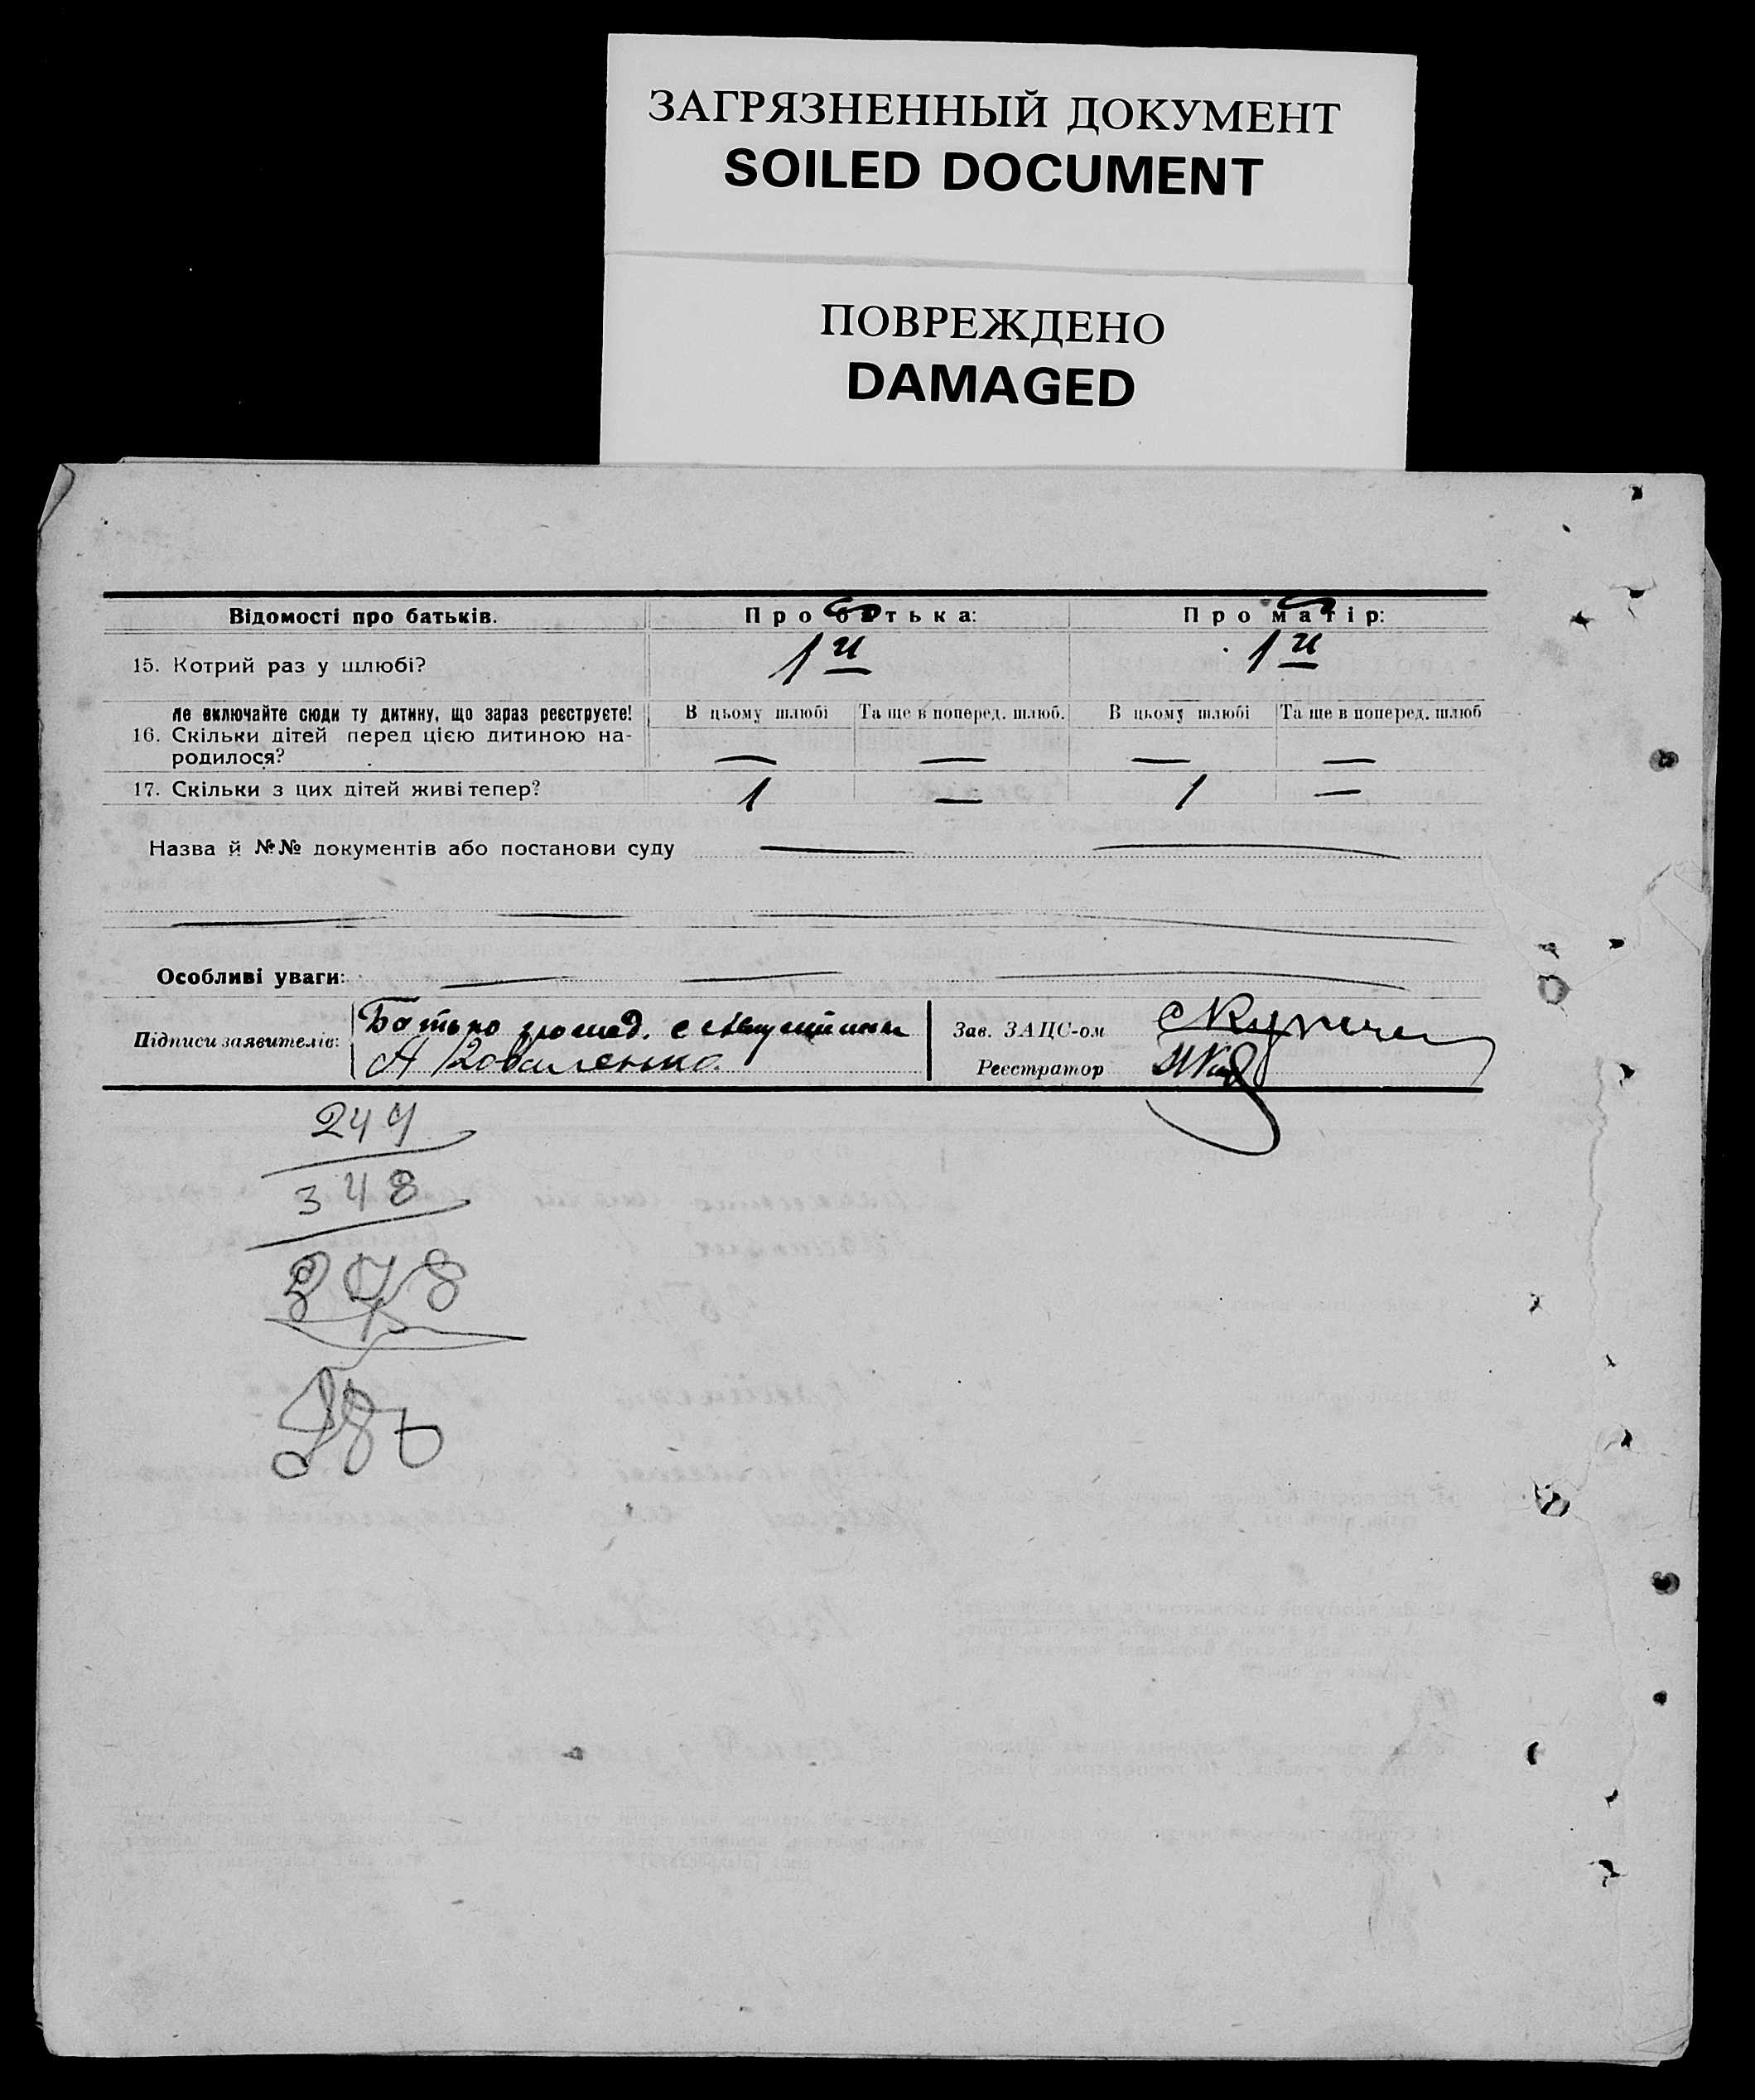 ЗАГРЯЗНЕННЫЙ ДОКУМЕНТ
SOILED DOCUMENT
ПОВРЕЖДЕНО
DAMAGED
Відомості про батьків.
Про батька:
Про матір:
15. Котрий раз у шлюбі?
1 й
1 й
Не включайте сюди ту дитину, що зараз реєструєте!
В цьому шлюбі
Та ще в поперед. шлюб.
В цьому шлюбі
Та ще в поперед. шлюб
16. Скільки дітей перед цією дитиною на-
родилося?
— — — —
17. Скільки з цих дітей живі тепер?
1 — 1 —
Назва й №№ документів або постанови суду
Особливі уваги:
Підписи заявителів:
Батько
А Коваленко.
Зав. ЗАЦС-ом
Реєстратор
244
348